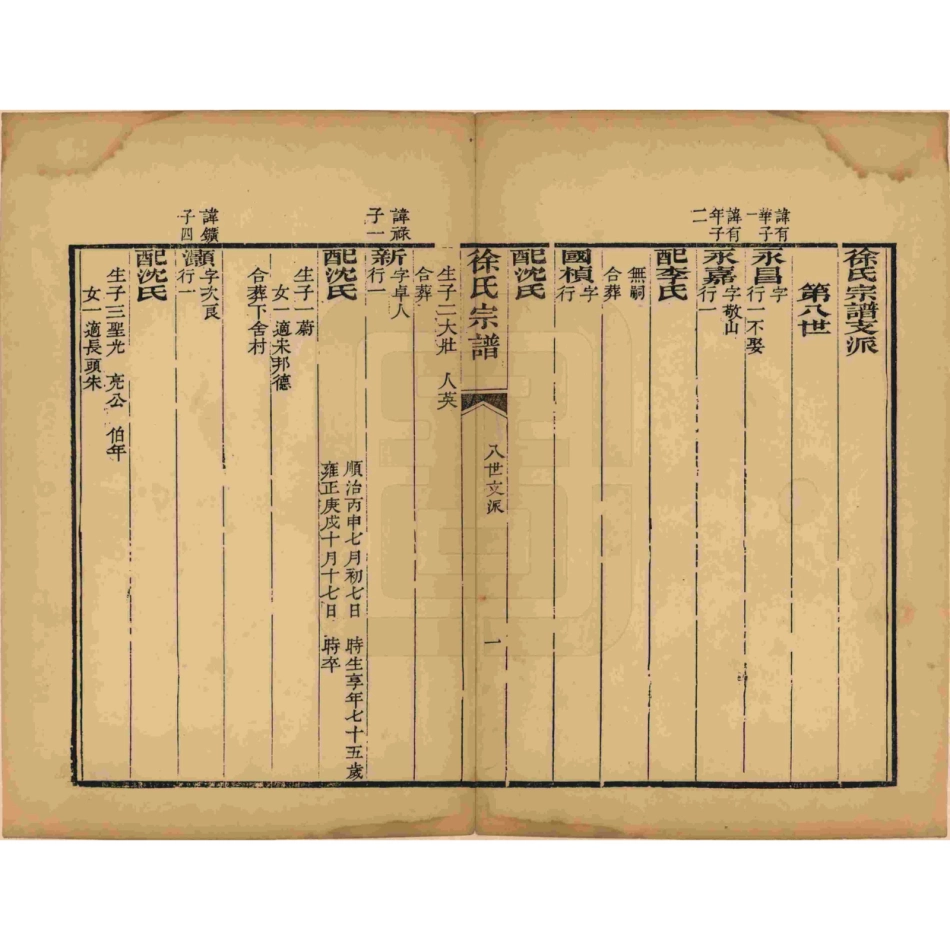 徐氏宗譜支派
第八世
諱有華子一
永昌 字 行一不娶
諱有年子二
永嘉 字敬山 行一
配李氏
無嗣
合葬
國楨 字 行
配沈氏
徐氏宗譜 八世支派 一
生子二大壯 人英
合葬
諱祿子一
新 字卓人 行一
順治丙申七月初七日 時生享年七十五歲
配沈氏
雍正庚戌十月十七日 時卒
生子一蔚
女一適宋邦德
合葬下舍村
諱鑛子四
灝 字次良 行一
配沈氏
生子三聖光 亮公 伯年
女一適長頭朱